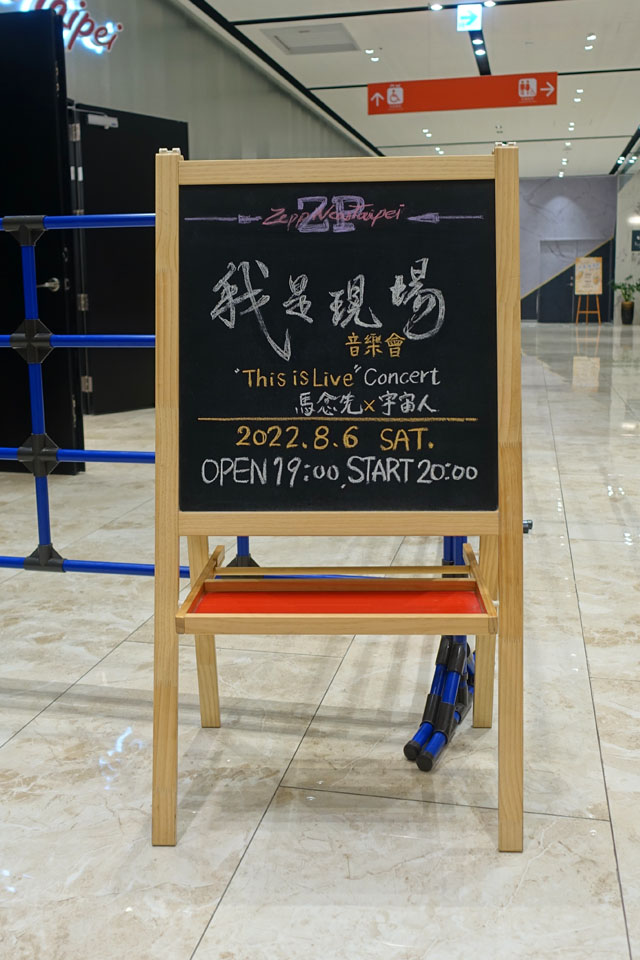 Taipei
ZP
Zepp New Taipei
我是現場
音樂會
"This is Live" Concert
馬念先×宇宙人
2022.8.6 SAT.
OPEN 19:00, START 20:00